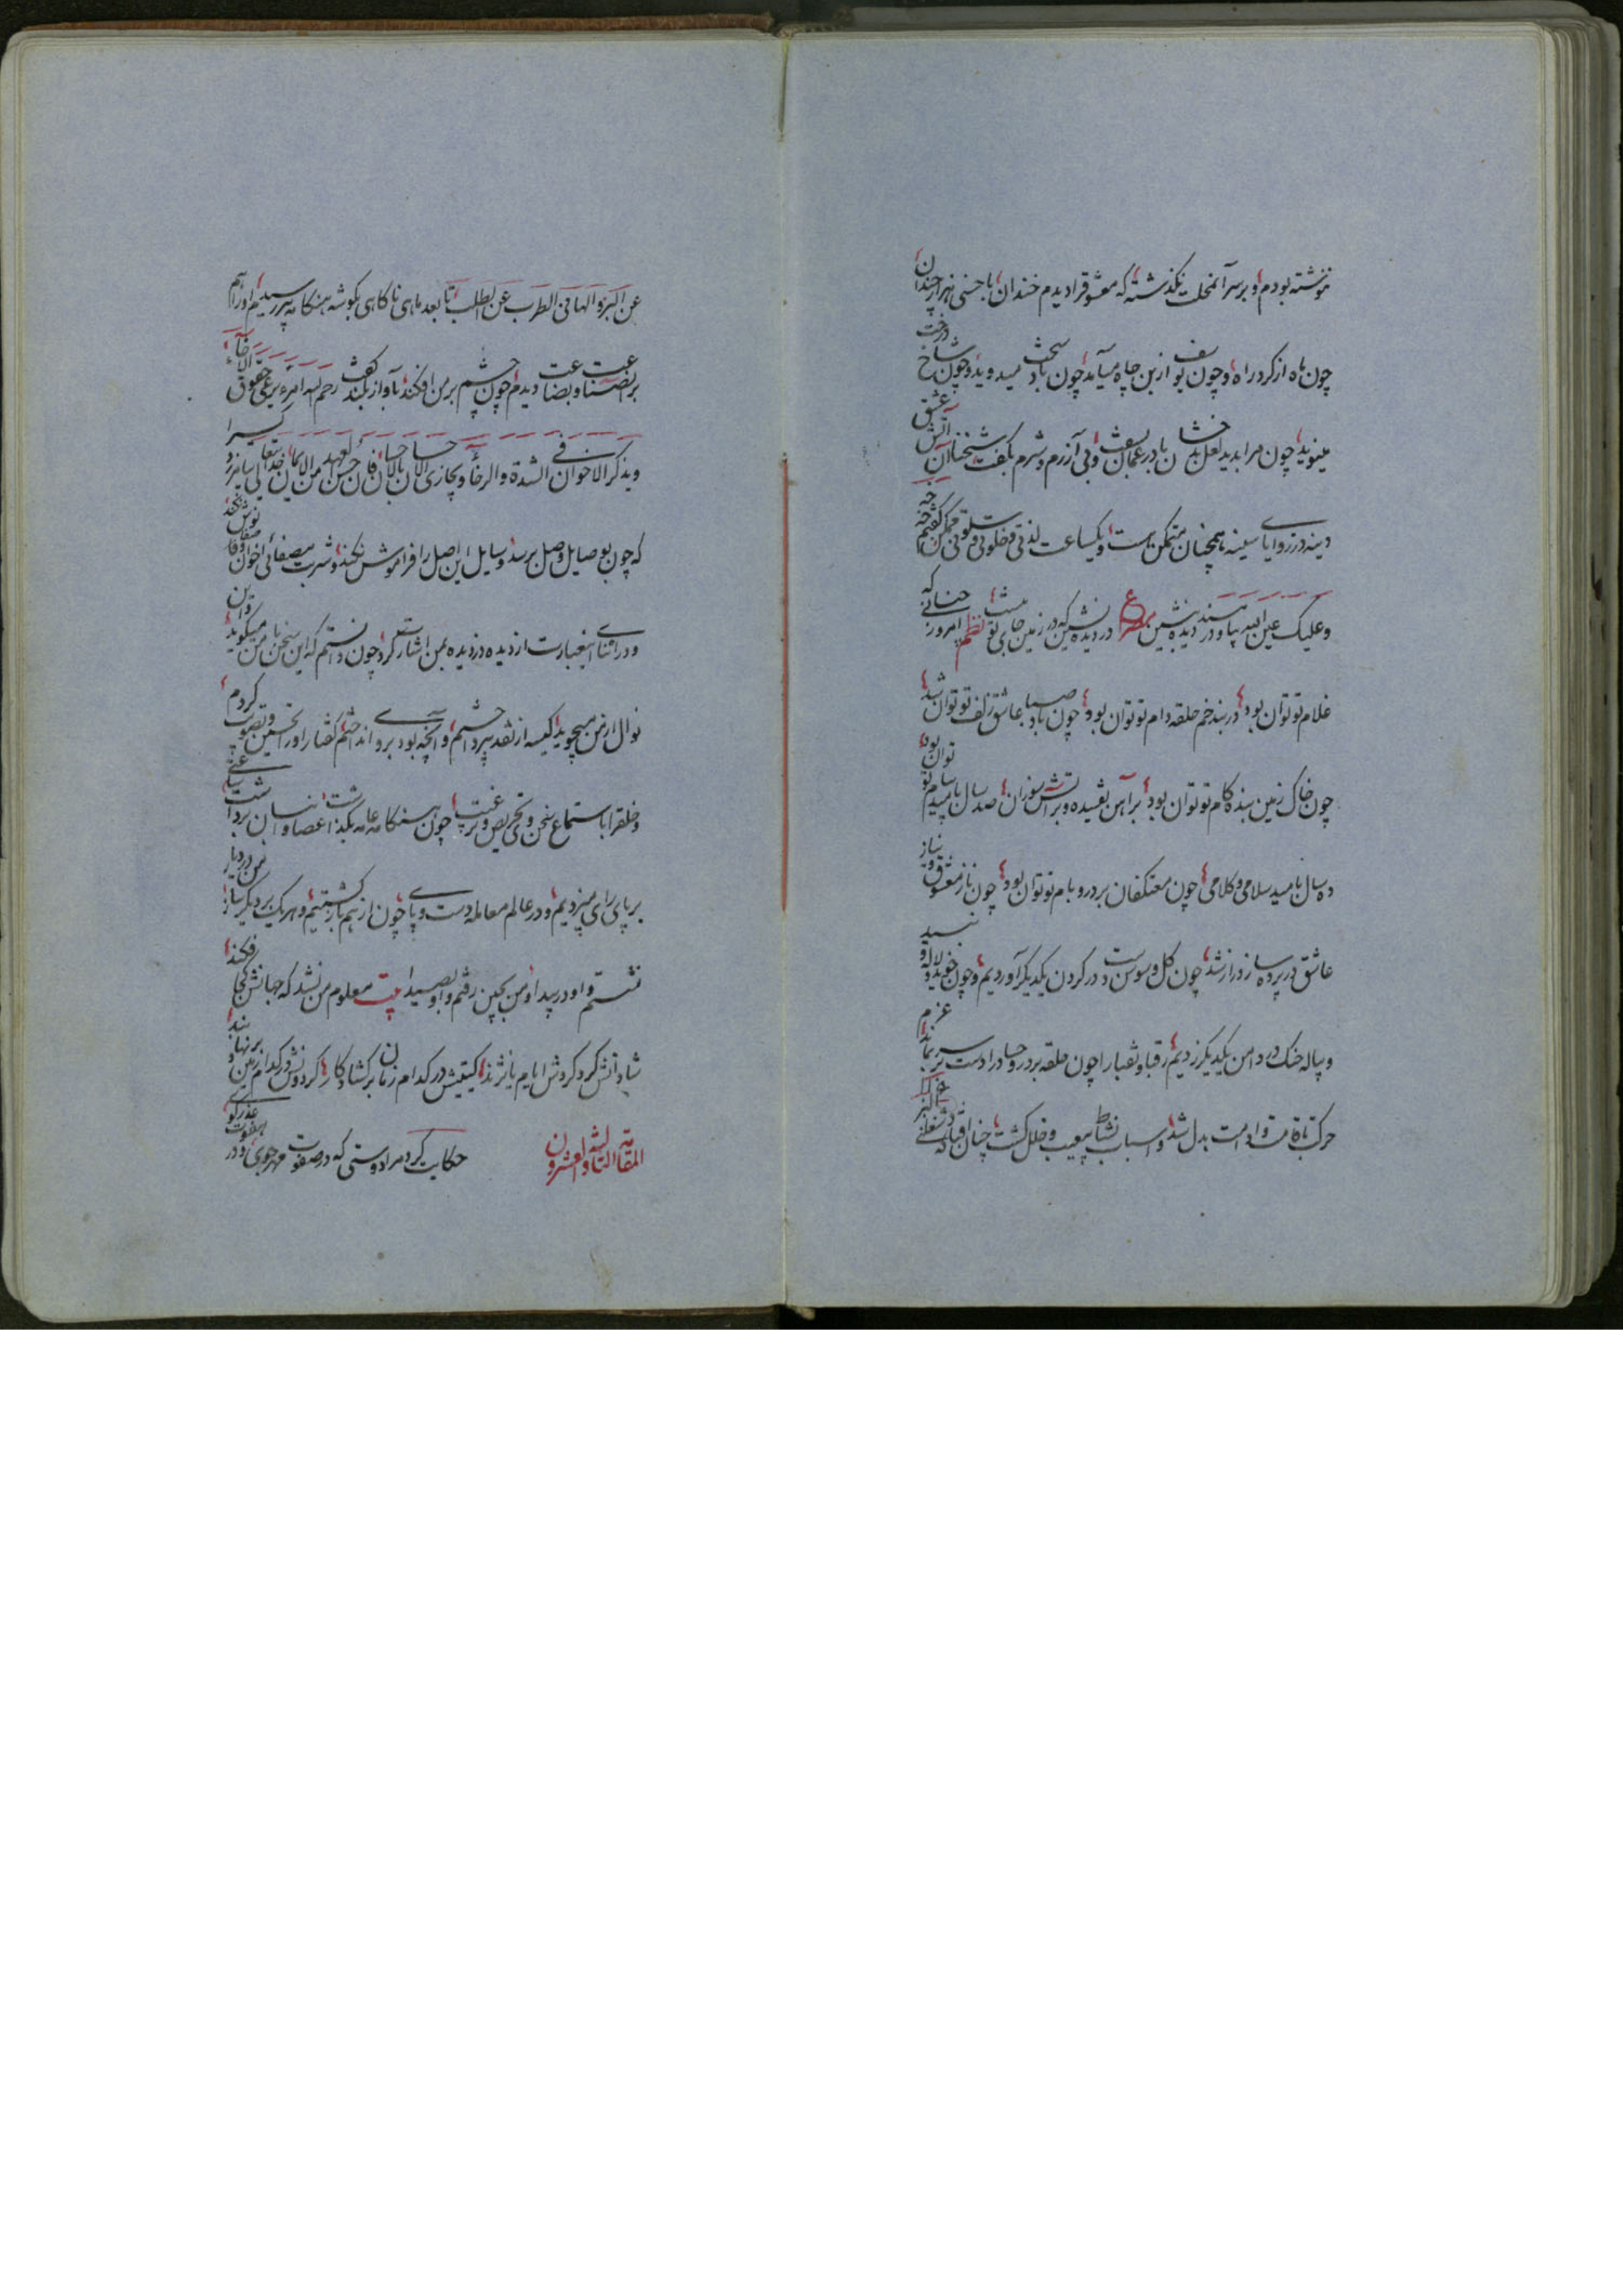 ننوشته بودم و بر سر آنمحلت نگذشته که معشوقرا دیدم خندان با حسنی هزار چندان
چون ماه از گرد راه و چون یوسف از بن چاه میآمد چون باد سخت میدوید و چون شاخ درخت
مینوید چون مرا بدید لعل بدخشان بادر عمان بسفت و بی آزرم و شرم بگفت سخنان آتش عشق
دینه در زوایای سینه همچنان متمکن هست و یکساعت لذتی و خلوتی و سلوتی ممکن گفتم
وعلیک عین الله بیا و در دیده بنشین مصرع در دیده نشین که در زمین جای تو نیست نظم امروز که
غلام تو توان بود در بند خم حلقه دام تو توان بود چون باد صبا عاشق زلف تو توان شد
چون خاک زمین بنده کام تو توان بود بر آهن تفسیده و بر آتش سوزان صد سال بامید پیام تو توان بود
ده سال بامید سلامی و کلامی چون معتکفان بر در و بام تو توان بود چون ناز معشوق و نیاز
عاشق در پرده ساز و راز شد چون گل و سوسن دست در گردن یکدیگر آوردیم و چون خوید و لاله
و پیاله چنگ در دامن یکدیگر زدیم رقبا و نقبا را چون حلقه بر در و حیا در ادست بر سر بماند عزم
حرکت باقامت و ادامت بدل شد و اسباب نشاط بیعیب و خلل گشت چنان افتاد که شغلنی
عن البر والهانی الطرب عن الطلب تا بعد ماهی ناگاهی بگوشه هنگامه پیر رسیدم او را هم
بر صناعت و بضاعت دیدم چون چشم بر من افکند بآواز بلند گفت رحم الله امرء یرعی حقوق الاخاء
ویذکر الاخوان فی الشدة والرخاء ویجازی الاحسان بالاحسان فان حسن العهد من الایمان خدایتعالی بیامرزد
که چون بوصایل وصل برسد وسایل این اصل را فراموش نکند و شربت مصفای اخوان صفا نوش کند
و در اثنای اینعبارت از دیده دزدیده بمن اشارت کرد چون دانستم که این سخن با من میگوید
نوال از من میجوید کیسه از نقد بپرداختم و آنچه بود بر وی انداختم گفتار او را تحسین و تصویب کردم
و خلقرا باستماع سخن و تحریص و ترغیب چون هنگامه عامه بگذاشت عصا و انبان برداشت ساعتی
بر پای رای میزدیم و در عالم معامله دست و پای چون از هم بازگشتیم و هر یک بر دیگر ساز
نشستم و او در بیدا و من بچین رفتم و او بصیدا بیت معلوم من نشد که جهانش کجا فکند
شادانش کرد گردش ایام یا نژند گیتیش در کدام زمان بر گشاد کار گردونش در کدام زمین بر نهاد بند
المقامة الثالثة والعشرون حکایت کرد مرا دوستی که در صفوت مهرجوی و در هفوت عذرگوی